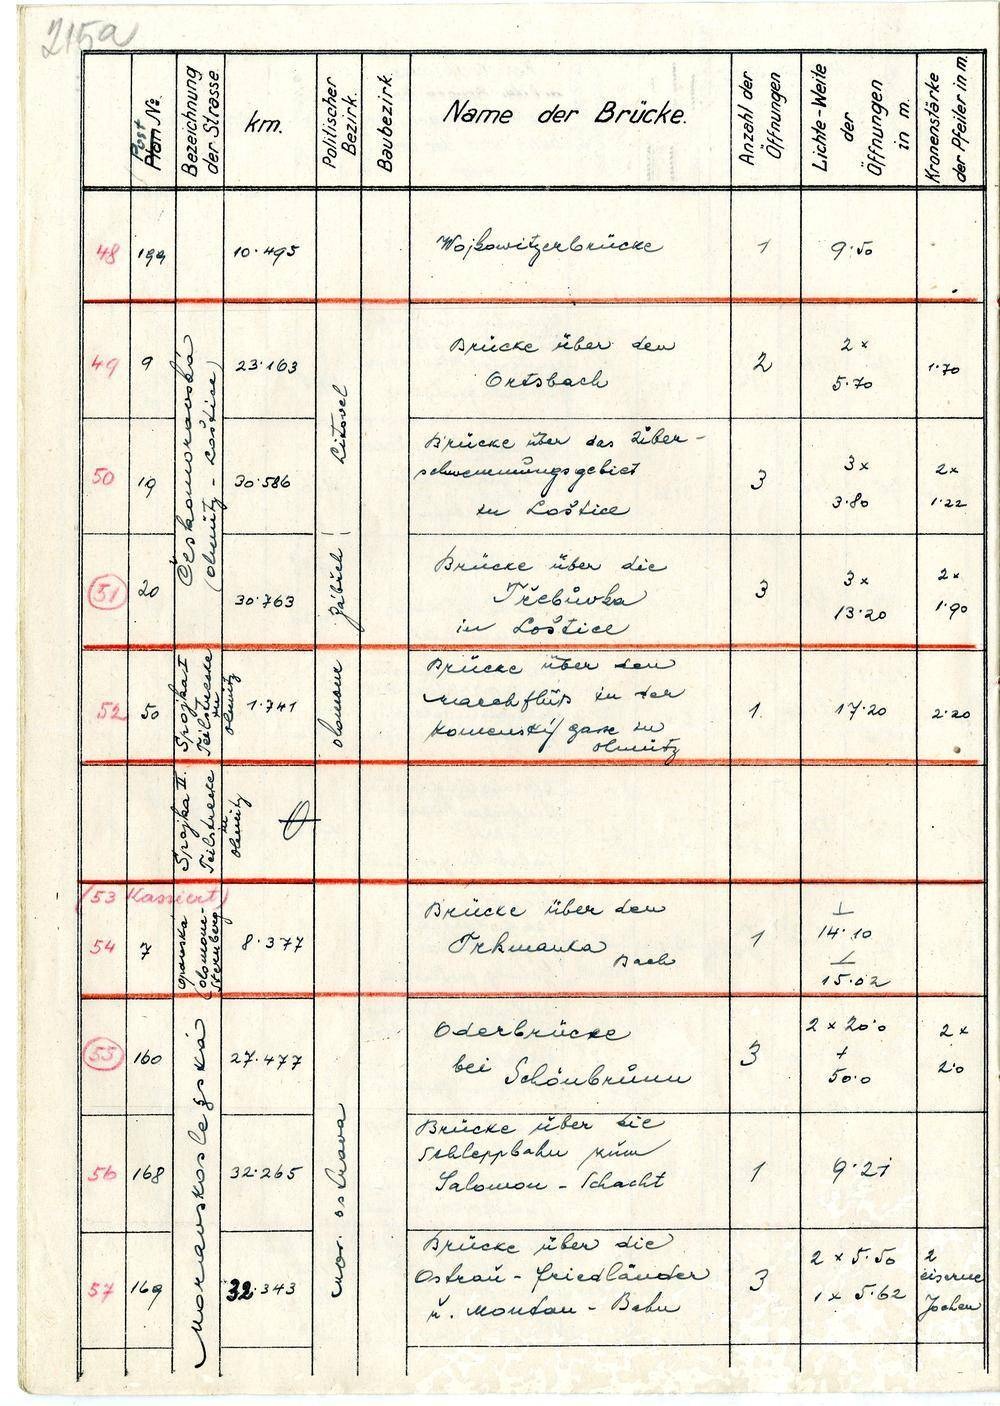 215a
Post
Plan No.
Bezeichnung
der Strasse
km.
Politischer
Bezirk.
Baubezirk.
Name der Brücke.
Anzahl der
Öffnungen
Lichte-Weite
der
Öffnungen
in m.
Kronenstärke
der Pfeiler in m.
48 199 10·495 Wojkowitzerbrücke 1 9·50
Českomoravská
(Olmütz - Loštice)
Litovel
Zábřeh
49 9 23·163 Brücke über den
Ortsbach
2
2 x
5·70
1·70
50 19 30·586 Brücke über das Über-
schwemmungsgebiet
in Loštice
3
3 x
3·80
2 x
1·22
51 20 30·763 Brücke über die
Třebůvka
in Loštice
3
3 x
13·20
2 x
1·90
Spojka I
Teilstrecke
in
Olmütz
Olomouc
52 50 1·741 Brücke über den
Marchfluß in der
Komenský gasse in
Olmütz
1
17·20
2·20
Spojka II.
Teilstrecke
in
Olmütz
(53 Kassiert)
Opavská
(Olomouc-
Sternberg)
54 7 8·377 Brücke über den
Trkmanka
Bach
1
⊥
14·10
∠
15·02
Moravskoslezská
Mor. Ostrava
55 160 27·477 Oderbrücke
bei Schönbrunn
3
2 x 20·0
+
50·0
2 x
2·0
56 168 32·265 Brücke über die
Schleppbahn zum
Salomon - Schacht
1
9·21
57 169 32·343 Brücke über die
Ostrau - Friedländer
u. Montan - Bahn
3
2 x 5·50
1 x 5·62
2
eiserne
Jochen